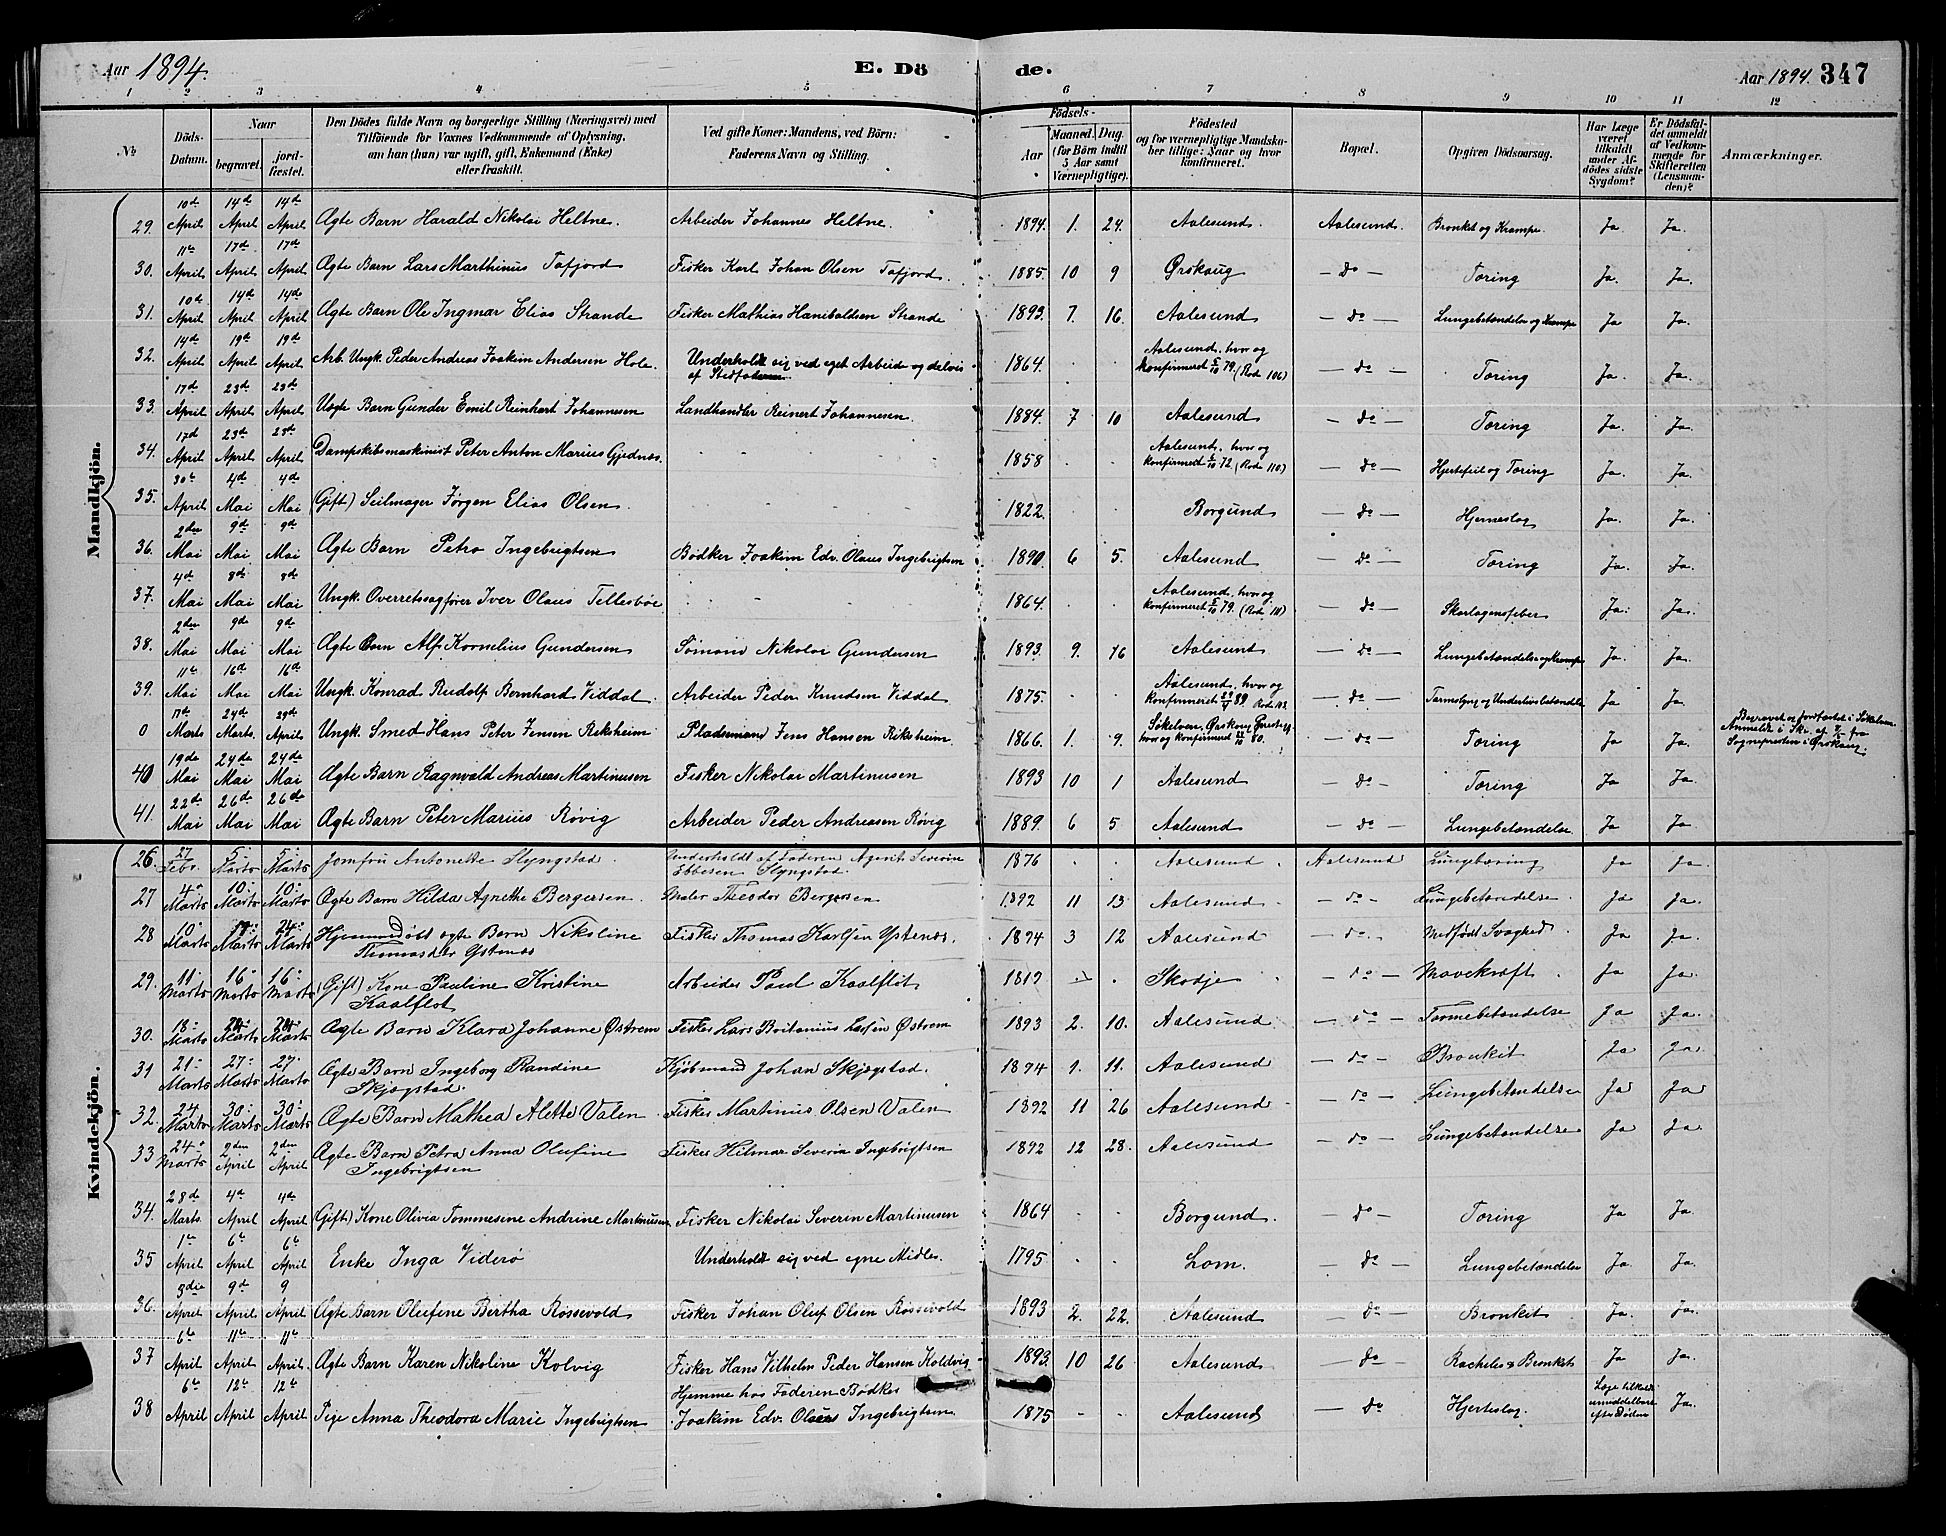 Aar 1894. E. Dö de. Aar 1894. 347
1 2 3 4 5 6 7 8 9 10 11 12
№ Döds-Datum. Naar begravet. jord-fæstet. Den Dödes fulde Navn og borgerlige Stilling (Næringsvei) med Tilföiende for Voxnes Vedkommende af Oplysning, om han (hun) var ugift, gift, Enkemand (Enke) eller fraskilt. Ved gifte Koner: Mandens, ved Börn: Faderens Navn og Stilling. Födsels- Aar Maaned. Dag. (for Börn indtil 5 Aar samt Værnepligtige). Födested og for værnepligtige Mandskaber tillige: Naar og hvor konfirmeret. Bopæl. Opgiven Dödsaarsag. Har Læge været tilkaldt under Afdödes sidste Sygdom? Er Dödsfaldet anmeldt af Vedkommende for Skifteretten (Lensmanden)? Anmærkninger.
Mandkjön.
29. 10de April 14de April 14de April Ægte Barn Harald Nikolai Heltne. Arbeider Johannes Heltne. 1894. 1. 24. Aalesund. Aalesund. Bronkit og Krampe. Ja. Ja.
30. 11te April 17de April 17de April Ægte Barn Lars Marthinus Tafjord Fisker Karl Johan Olsen Tafjord. 1885 10 9 Ørskoug — Do — Tæring Ja. Ja.
31. 10de April 14de April 14de April Ægte Barn Ole Ingmar Elias Strande Fisker Mathias Haniboldsen Strande 1893. 7. 16. Aalesund — Do — Lungebetændelse og Krampe Ja Ja.
32. 14de April 19de April 19de April Arb. Ungk. Peder Andreas Joakim Andersen Hole. Underholdt sig ved eget Arbeide og delvis af Stedfaderen 1864. Aalesund, hvor og konfirmeret 5/10 79. (Rode 106) — Do — Tæring Ja. Ja.
33. 17de April 23de April 23de April Uægte Barn Gunder Emil Reinhart Johannesen Landhandler Reinert Johannesen. 1884 7 10 Aalesund — Do — Tæring Ja. Ja.
34. 17de April 23de April 23de April Dampskibsmaskinist Peter Anton Marius Gjednæs. 1858 Aalesund, hvor og konfirmeret 6/10 72 (Rode 110.) — Do — Hjertefeil og Tæring Ja. Ja.
35. 30te April 4de Mai 4de Mai (Gift) Seilmager Jørgen Elias Olsen 1822. Borgund — Do — Hjerneslag Ja. Ja.
36. 2den Mai 9de Mai 9de Mai Ægte Barn Petro Ingebrigtsen Bødker Joakim Edv. Olaus Ingebrigtsen 1890 6 5. Aalesund — Do — Tæring Ja. Ja.
37. 4de Mai 8de Mai 8de Mai Ungk. Overretssagfører Iver Olaus Tellesbøe 1864. Aalesund, hvor og konfirmeret 5/10 79. (Rode 111) — Do — Skarlagensfeber Ja. Ja.
38. 2den Mai 9de Mai 9de Mai Ægte Barn Alf Kornelius Gundersen Sømand Nikolai Gundersen 1893. 9. 16 Aalesund — Do — Lungebetændelse og Krampe Ja. Ja.
39. 11te Mai 16de Mai 16de Mai Ungk. Konrad Rudolf Bernhard Viddal. Arbeider Peder Knudsen Viddal 1875. Aalesund, hvor og konfirmeret 89. — Do — Tarmslyng og Underlivsbetændelse Ja Ja.
0 17de Marts 24de Marts. 29de April Ungk. Smed Hans Peter Jensen Riksheim Pladsemand Jens Hansen Riksheim. 1866. 1. 9. Søkelven, Ørskoug hvor og konfirmeret 80. — Do — Tæring Ja Ja. Begravet og jordfæstet i Søkelven Anmeldt i Skr. af fra Sognepresten i Ørskoug.
40 19de Mai 24de Mai 24de Mai Ægte Barn Ragnvald Andreas Martinusen Fisker Nikolai Martinusen 1893 10 1 Aalesund — Do — Tæring Ja Ja.
41. 22de Mai 26de Mai 26de Mai Ægte Barn Peter Marius Røvig Arbeider Peder Andreasen Røvig 1889. 6 5 Aalesund — Do — Lungebetændelse Ja Ja.
Kvindekjön.
26. 27 Febr. 5 Marts 5 Marts Jomfru Antonette Slyngstad. Underholdt af Faderen Agent Severin Ebbesen Slyngstad. 1876 Aalesund. Aalesund Lungetæring Ja Ja.
27 4 Marts 10 Marts 10 Marts Ægte Barn Hilda Agnethe Bergersen. Maler Theodor Bergersen 1892 11 13 Aalesund — do — Lungebetændelse. Ja Ja.
28 10 Marts 19 Marts 24 Marts Hjemmedøbt ægte Barn Nikoline Thomasdtr Ystenæs Fisker Thomas Karlsen Ystenæs. 1894 3 12 Aalesund — do — Medfødt Svaghed. Ja Ja.
29. 11 Marts 16 Marts 16 Marts (Gift) Kone Pauline Kristine Kaalflot Arbeider Paul Kaalflot 1819 Skodje — do — Mavekræft. Ja Ja.
30. 18 Marts 24 Marts 24 Marts Ægte Barn Klara Johanne Østrem Fisker Lars Britanius Larsen Østrem 1893 2. 10. Aalesund — do — Tarmebetændelse Ja Ja.
31 21 Marts 27 Marts 27 Marts Ægte Barn Ingeborg Randine Skjegstad. Kjøbmand Johan Skjegstad. 1894 1. 11. Aalesund — do — Bronkit Ja Ja.
32. 24 Marts 30 Marts 30 Marts Ægte Barn Mathea Alette Valen Fisker Martinus Olsen Valen 1892 11 26 Aalesund — do — Lungebetændelse Ja Ja.
33 24 Marts 2den April 2den April Ægte Barn Petra Anna Olufine Ingebrigtsen Fisker Hilmar Severin Ingebrigtsen 1892 12 28. Aalesund — do — Lungebetændelse Ja Ja.
34. 28de Marts. 4de April 4de April (Gift) Kone Olivia Tommesine Andrine Martinusen Fisker Nikolai Severin Martinusen 1864 Borgund. — Do — Tæring Ja Ja.
35 1te April 6te April 6te April Enke Inga Viderø Underholdt sig ved egne Midler. 1795 Lom. — Do Lungebetændelse Ja Ja.
36. 3die April 9de April 9 April Ægte Barn Olufine Bertha Røssevold Fisker Johan Oluf Olsen Røssevold 1893 2. 22. Aalesund — Do — Bronkit Ja. Ja.
37 6te April 11te April 11te April. Ægte Barn Karen Nikoline Kolvig Fisker Hans Vilhelm Peder Hansen Koldvig 1893. 10 26 Aalesund — Do — Rachitis & Bronkit Ja Ja.
38 6te April 12te April 12te April Pige Anna Theodora Marie Ingebrigtsen Hjemme hos Faderen Bødker Joakim Edv. Olaus Ingebrigtsen. 1875 Aalesund — Do Hjerteslag. Læge tilkaldt umiddelbart efter Døden Ja.